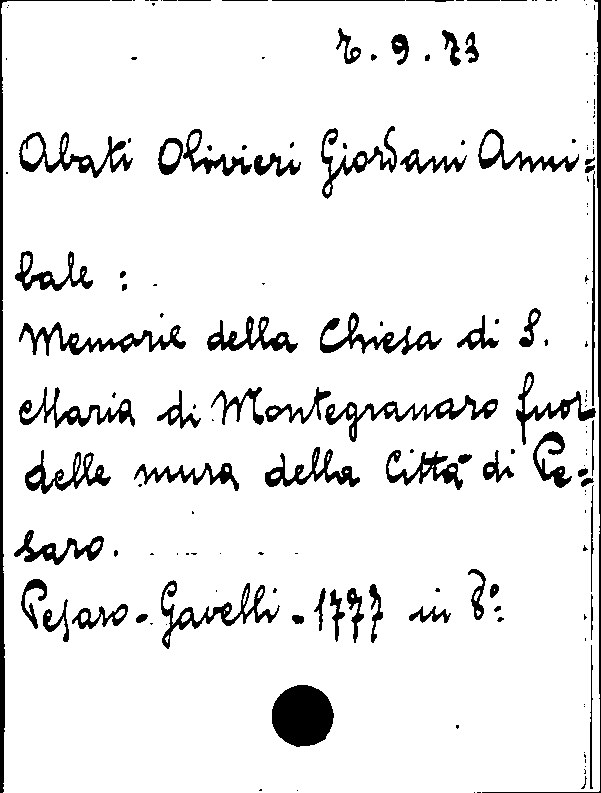 7.9.73
Abati Olivieri Giordani Anni=
bale :
Memorie della Chiesa di S.
Maria di Montegranaro fuor
delle mura della Città di Pe=
saro.
Pesaro - Gavelli - 1777 in 8º